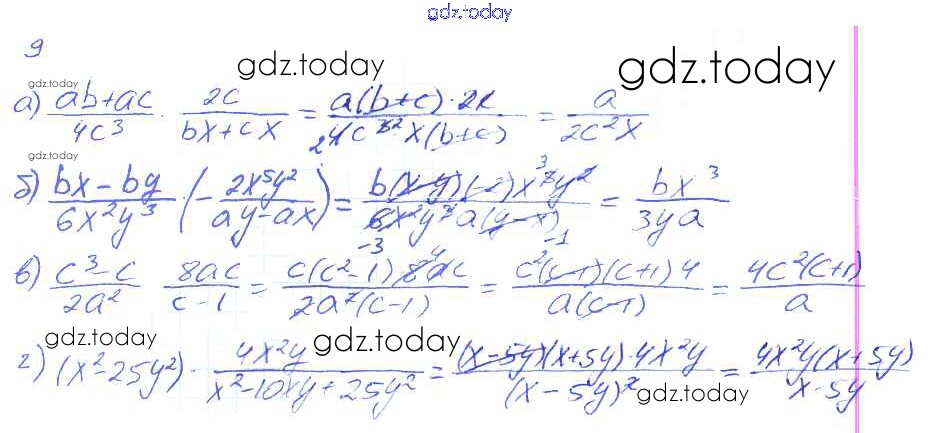 gdz.today
9
gdz.today gdz.today gdz.today
а) (ab+ac)/(4c³) · 2c/(bx+cx) = (a(b+c)·2c)/(4c³² x(b+c)) 2 = a/(2c²x)
gdz.today
б) (bx−by)/(6x²y³) · (− 2x⁵y²/(ay−ax)) = (b(x−y)(−2)x⁵y²)/(6x²y³a(y−x)) 3 −3 −1 = bx³/(3ya)
в) (c³−c)/(2a²) 8ac/(c−1) = (c(c²−1)8ac)/(2a²(c−1)) 4 = (c²(c−1)(c+1)4)/(a(c−1)) = 4c²(c+1)/a
gdz.today gdz.today
г) (x²−25y²) · 4x²y/(x²−10xy+25y²) = ((x−5y)(x+5y)·4x²y)/((x−5y)²) = 4x²y(x+5y)/(x−5y)
gdz.today